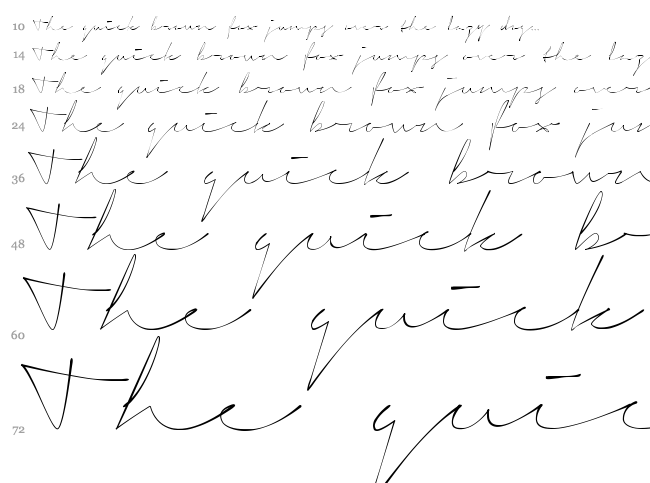 10 The quick brown fox jumps over the lazy dog...
14 The quick brown fox jumps over the laz
18 The quick brown fox jumps over
24 The quick brown fox jum
36 The quick brown
48 The quick br
60 The quick
72 The quic